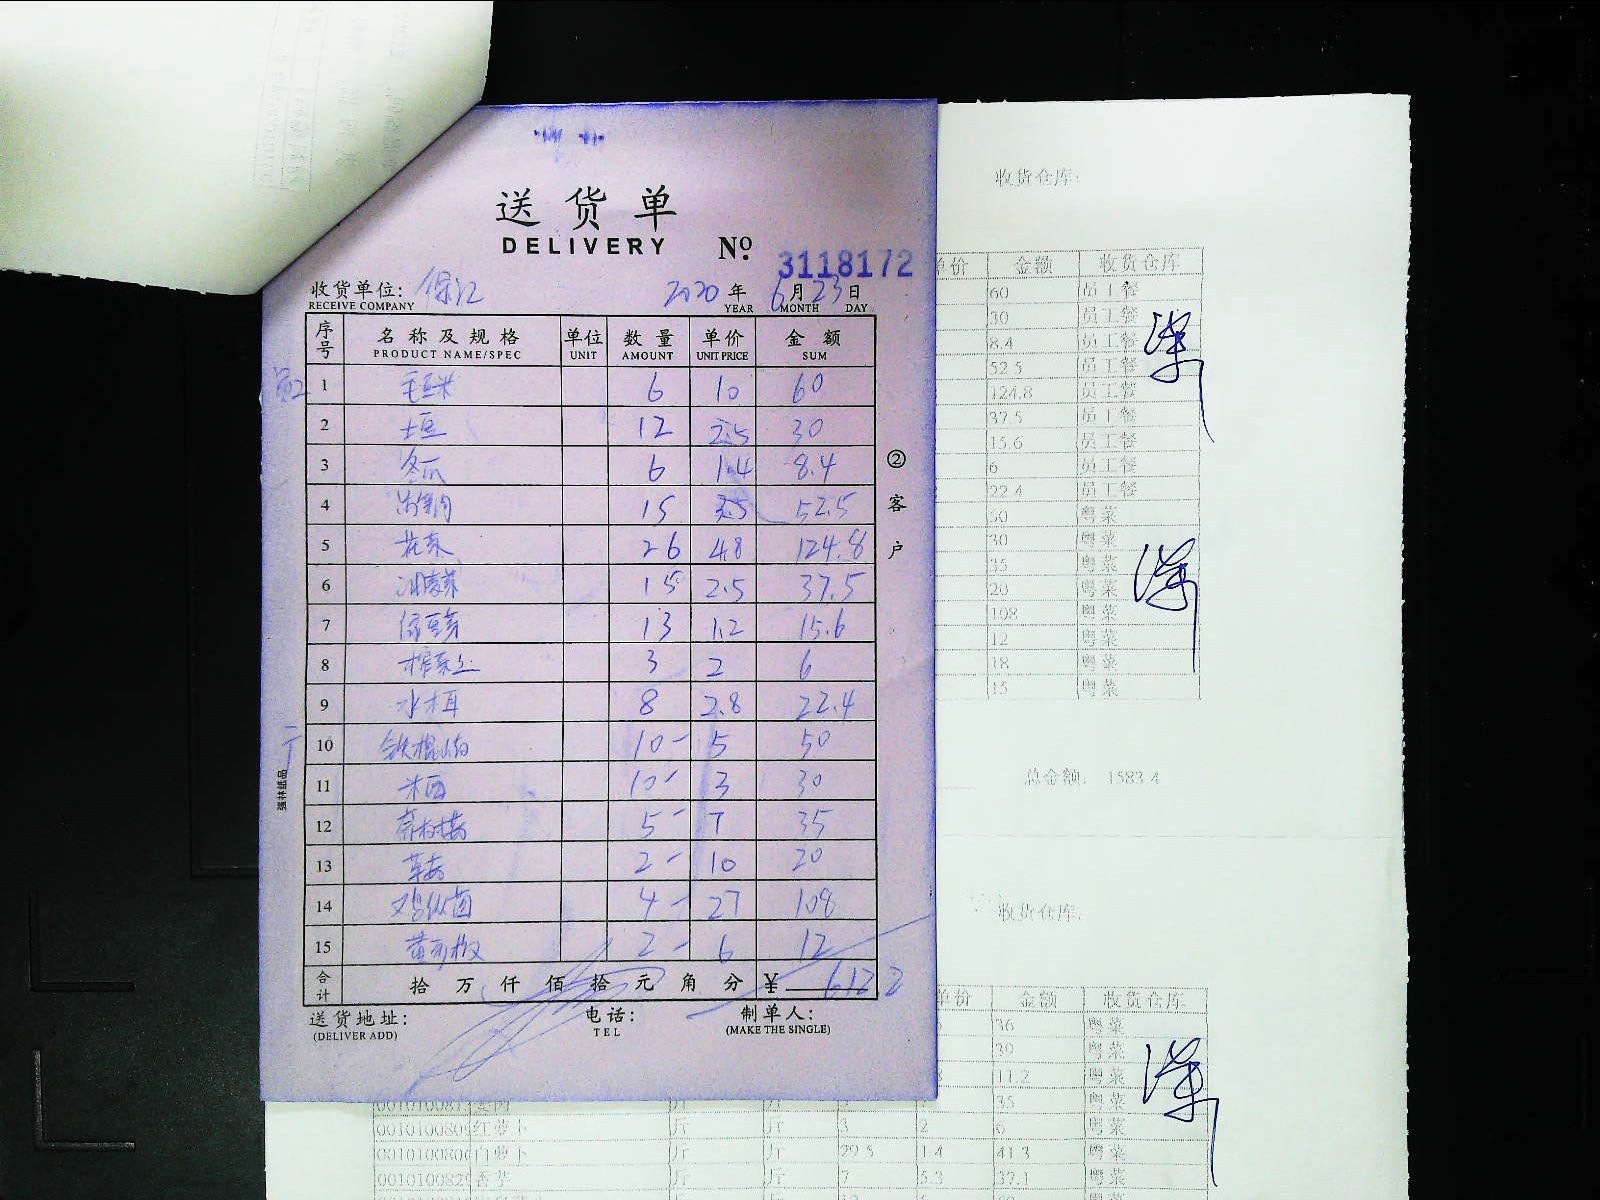 送货单
DELIVERY
No. 3118172
收货单位: 保江
RECEIVE COMPANY
2020年6月23日
YEAR MONTH DAY
序号 名称及规格 单位 数量 单价 金额
PRODUCT NAME/SPEC UNIT AMOUNT UNIT PRICE SUM
1 毛豆米 6 10 60
2 土豆 12 2.5 30
3 冬瓜 6 1.4 8.4
4 15 3.5 52.5
5 花菜 26 4.8 124.8
6 15 2.5 37.5
7 绿豆芽 13 1.2 15.6
8 榨菜丝 3 2 6
9 水木耳 8 2.8 22.4
10 铁棍山药 10- 5 50
11 米西 10- 3 30
12 5- 7 35
13 草莓 2- 10 20
14 鸡纵菌 4- 27 108
15 黄彩椒 2- 6 12
合计 拾万仟佰拾元角分 ¥ 612.2
送货地址:
(DELIVER ADD)
电话:
TEL
制单人:
(MAKE THE SINGLE)
②客户
强林纸品
收货仓库:
单价 金额 收货仓库
60 员工餐
30 员工餐
8.4 员工餐
52.5 员工餐
124.8 员工餐
37.5 员工餐
15.6 员工餐
6 员工餐
22.4 员工餐
50 粤菜
30 粤菜
35 粤菜
20 粤菜
108 粤菜
12 粤菜
18 粤菜
15 粤菜
总金额: 1583.4
收货仓库:
单价 金额 收货仓库
36 粤菜
39 粤菜
11.2 粤菜
35 粤菜
红萝卜 斤 斤 3 2 6 粤菜
白萝卜 斤 斤 29.5 1.4 41.3 粤菜
香芋 斤 斤 7 5.3 37.1 粤菜